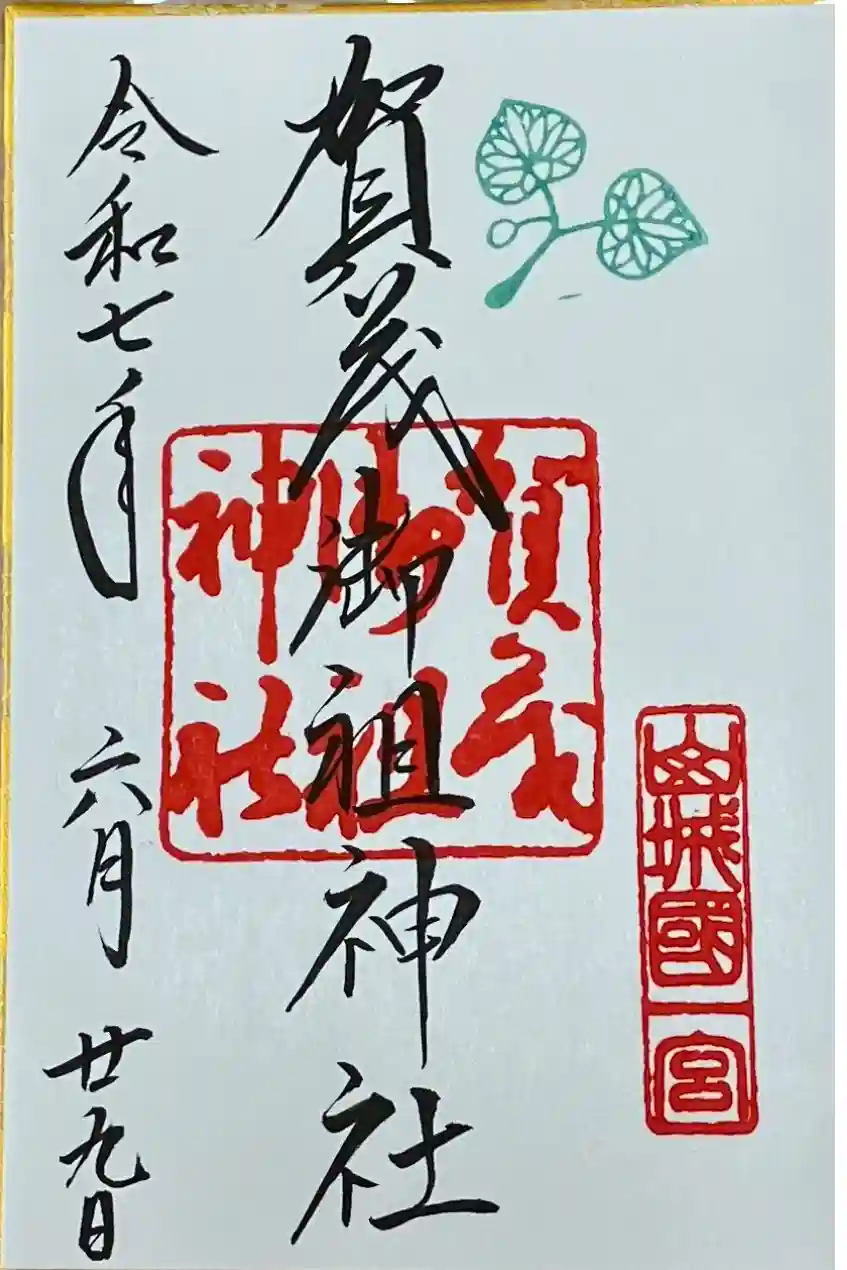 山城國一宮
賀茂御祖神社
賀茂
御祖
神社
令和七年 六月 廿九日